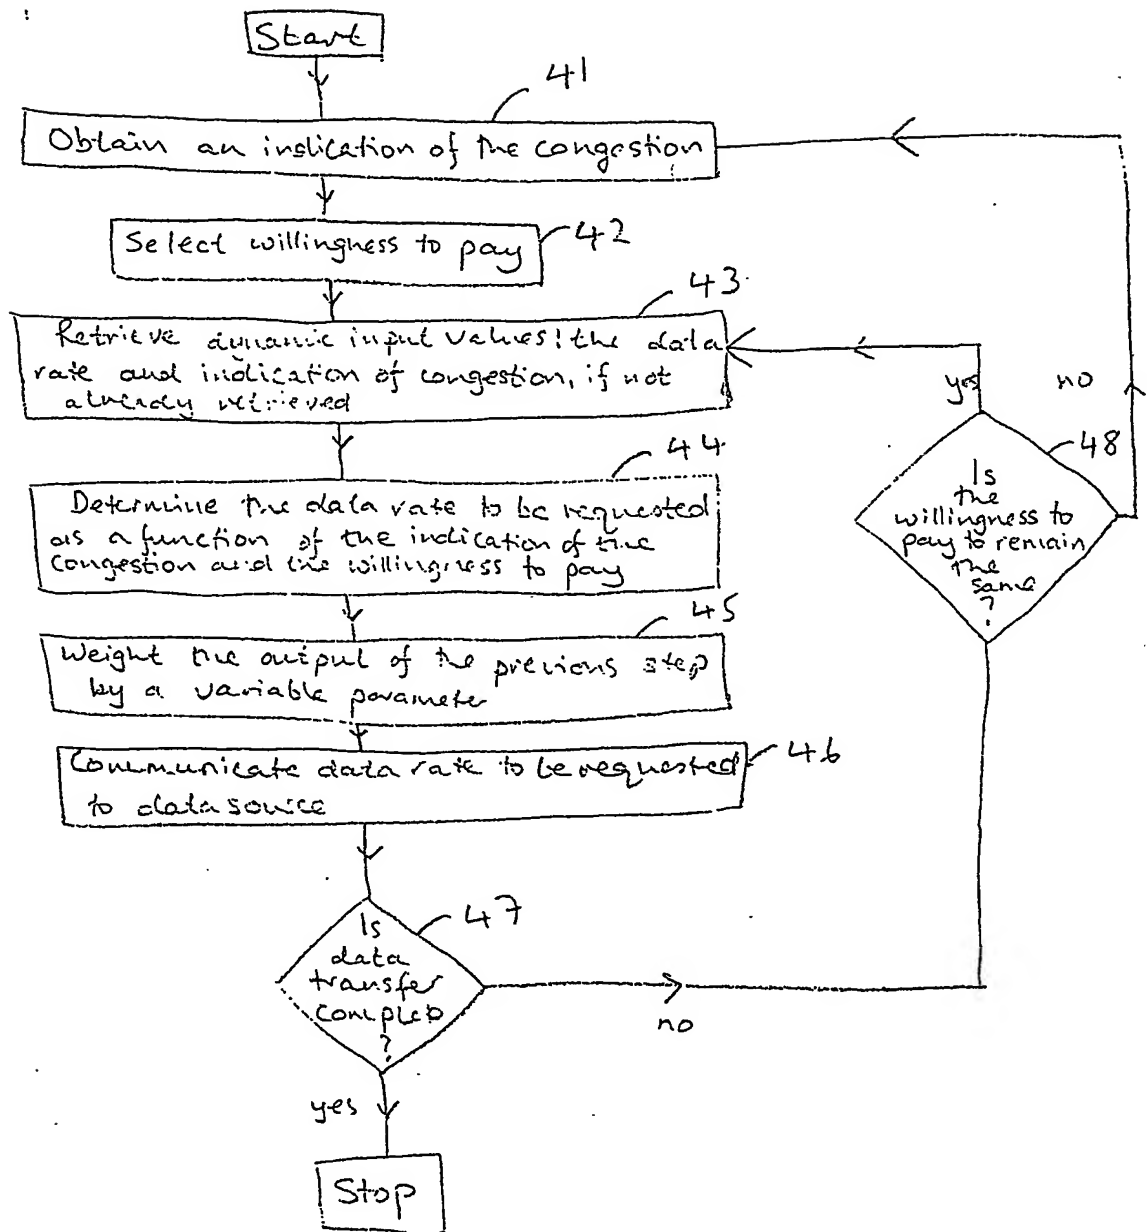 Start
41
Obtain an indication of the congestion
42
Select willingness to pay
43
Retrieve dynamic input values: the data
rate and indication of congestion, if not
already retrieved
44
Determine the data rate to be requested
as a function of the indication of the
congestion and the willingness to pay
45
Weight the output of the previous step
by a variable parameter
46
Communicate data rate to be requested
to data source
47
Is
data
transfer
complete
?
no
yes
Stop
48
Is
the
willingness to
pay to remain
the
same
?
yes
no